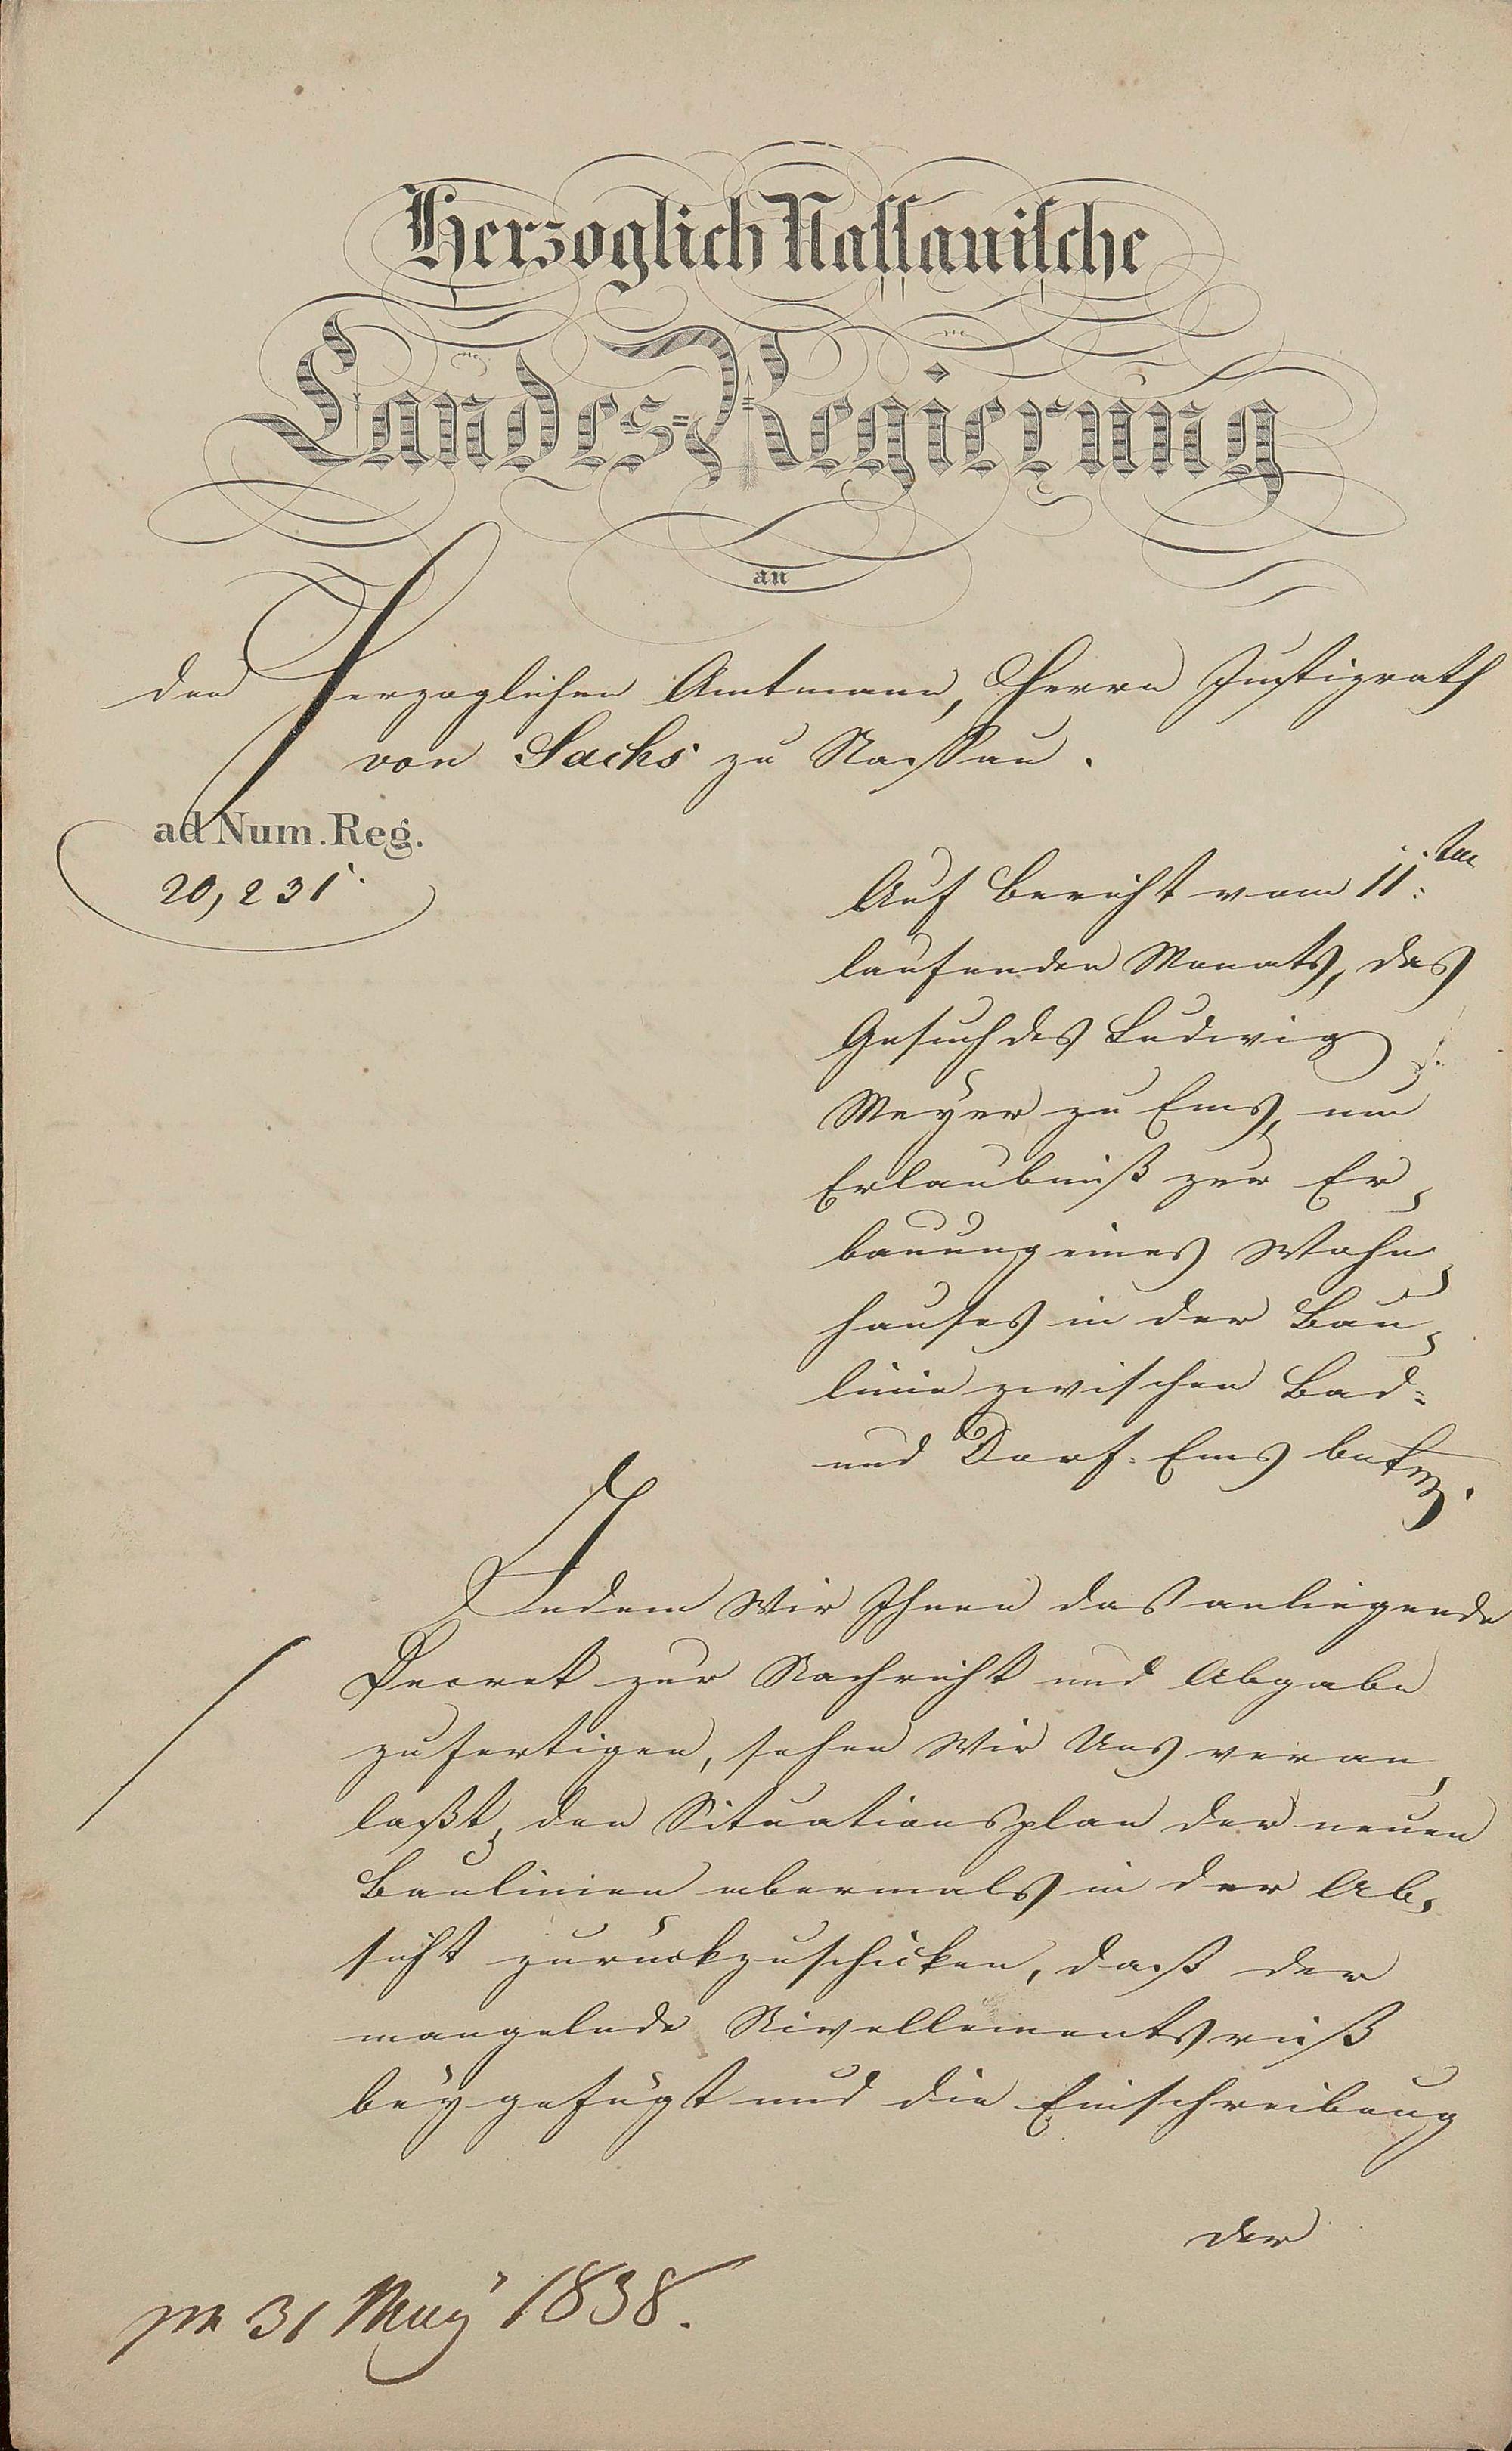 Herzoglich Nassauische
Landes-Regierung
an
den Herzoglichen Amtmann, Herrn Justizrath
von Sachs zu Nassau.
ad Num. Reg.
20,231.
Auf Bericht vom 11ten
laufenden Monats, das
Gesuch des Ludwig
Meyer zu Ems, um
Erlaubniß zur Er,
bauung eines Wohn,
hauses in der Bau,
linie zwischen Bad-
und Dorf-Ems betr.
Indem Wir Ihnen das anliegende
Decret zur Nachricht und Abgabe
zufertigen, sehen Wir Uns veran,
laßt, den Situationsplan der neuen
Baulinien abermals in der Ab,
sicht zurückzuschicken, daß der
mangelnde Nivellementsriß
beygefügt und die Einschreibung
der
pr 31 May 1838.